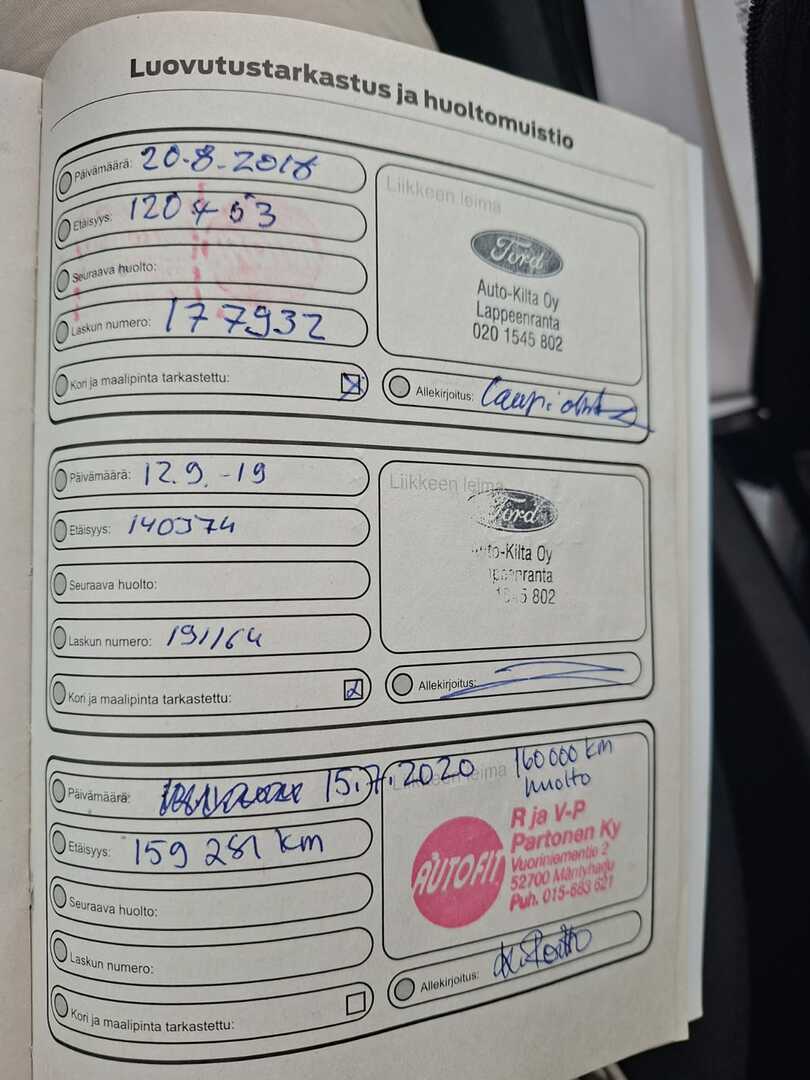 Luovutustarkastus ja huoltomuistio
Päivämäärä: 20.8.2018
Etäisyys: 120403
Seuraava huolto:
Laskun numero: 177932
Kori ja maalipinta tarkastettu:
Liikkeen leima
Ford
Auto-Kilta Oy
Lappeenranta
020 1545 802
Allekirjoitus:
Päivämäärä: 12.9.-19
Etäisyys: 140374
Seuraava huolto:
Laskun numero: 191164
Kori ja maalipinta tarkastettu:
Liikkeen leima
Ford
Auto-Kilta Oy
ppeenranta
1545 802
Allekirjoitus:
Päivämäärä: 15.7.2020
Etäisyys: 159 281 km
Seuraava huolto:
Laskun numero:
Kori ja maalipinta tarkastettu:
Liikkeen leima
160 000 km
huolto
AUTOFIT
R ja V-P
Partonen Ky
Vuoriniementie 2
52700 Mäntyharju
Puh. 015-683 621
Allekirjoitus: